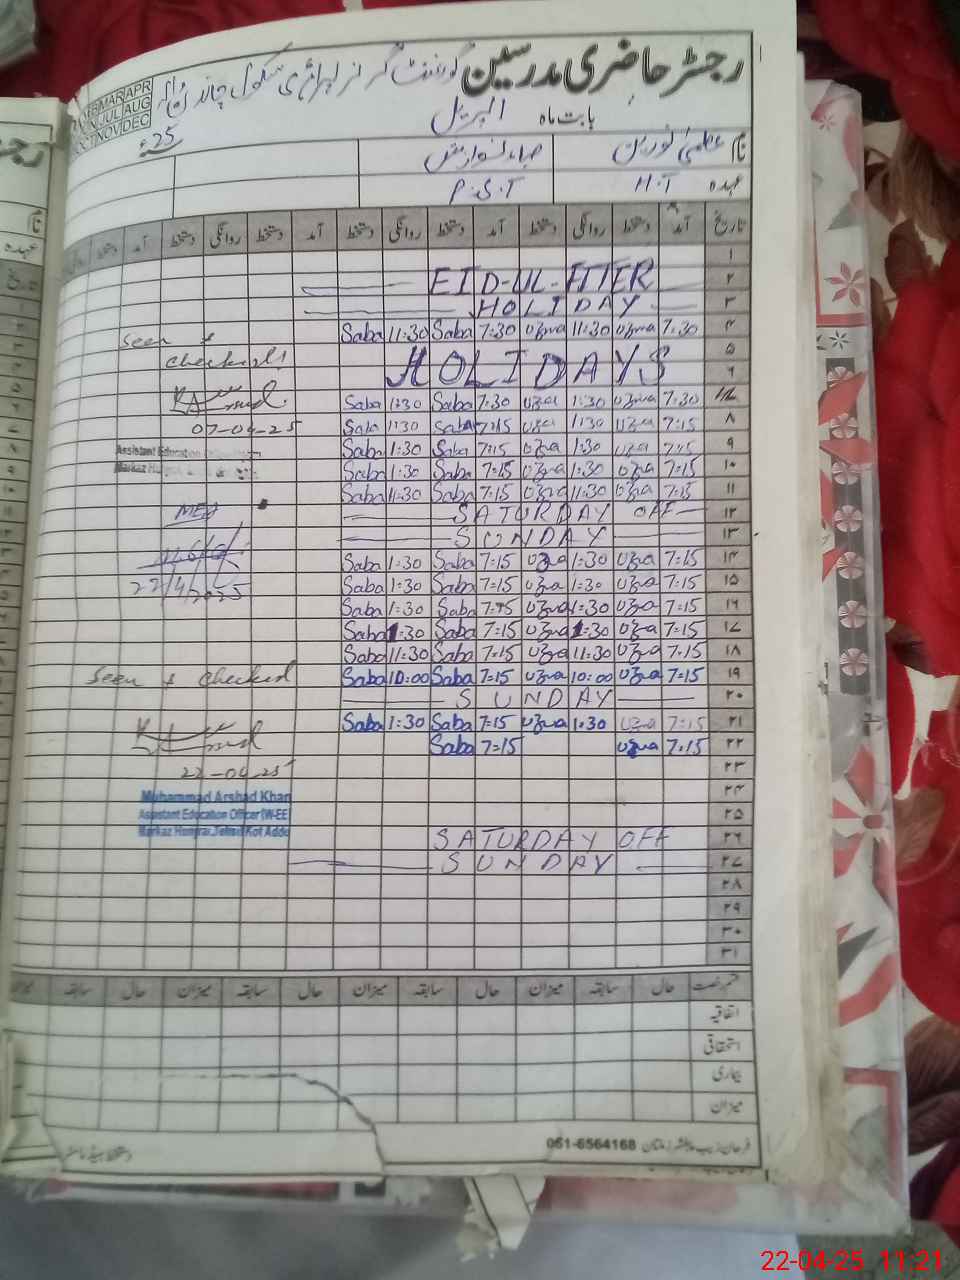 رجسٹر حاضری مدرسین گورنمنٹ گرلز پرائمری سکول
MAR APR
JUL AUG
OCT NOV DEC
25
بابت ماہ اپریل
نام عظمیٰ نورین صباء نواز
عہدہ H.T P.S.T
تاریخ آمد دستخط روانگی دستخط آمد دستخط روانگی دستخط آمد دستخط روانگی دستخط آمد دستخط
۱
۲ EID-UL-FITER
۳ HOLIDAY
۴ 7:30 uzma 11:30 uzma 7:30 Saba 11:30 Saba
Seen & checked
۵ HOLIDAYS
۶
۷ 7:30 uzma 1:30 uzma 7:30 Saba 1:30 Saba
۸ 7:15 uzma 1:30 uzma 7:15 Saba 1:30 Saba
07-04-25
۹ 7:15 uzma 1:30 uzma 7:15 Saba 1:30 Saba
Assistant Education
۱۰ 7:15 uzma 1:30 uzma 7:15 Saba 1:30 Saba
Markaz
۱۱ 7:15 uzma 11:30 uzma 7:15 Saba 11:30 Saba
۱۲ SATURDAY OFF
MEA
۱۳ SUNDAY
۱۴ 7:15 uzma 1:30 uzma 7:15 Saba 1:30 Saba
۱۵ 7:15 uzma 1:30 uzma 7:15 Saba 1:30 Saba
22/4/2025
۱۶ 7:15 uzma 1:30 uzma 7:15 Saba 1:30 Saba
۱۷ 7:15 uzma 1:30 uzma 7:15 Saba 1:30 Saba
۱۸ 7:15 uzma 11:30 uzma 7:15 Saba 11:30 Saba
۱۹ 7:15 uzma 10:00 uzma 7:15 Saba 10:00 Saba
Seen & checked
۲۰ SUNDAY
۲۱ 7:15 uzma 1:30 uzma 7:15 Saba 1:30 Saba
۲۲ 7:15 uzma 7:15 Saba
۲۳
22-04-25
۲۴
Muhammad Arshad Khan
۲۵
Assistant Education Officer (W-EE)
۲۶ SATURDAY OFF
Markaz Humrai Tehsil Kot Addu
۲۷ SUNDAY
۲۸
۲۹
۳۰
۳۱
رخصت حال سابقہ میزان حال سابقہ میزان حال سابقہ میزان حال سابقہ
اتفاقیہ
استحقاقی
بیماری
میزان
فرحان زیب پبلشرز ملتان 061-6564168
دستخط ہیڈ ماسٹر
22-04-25 11:21